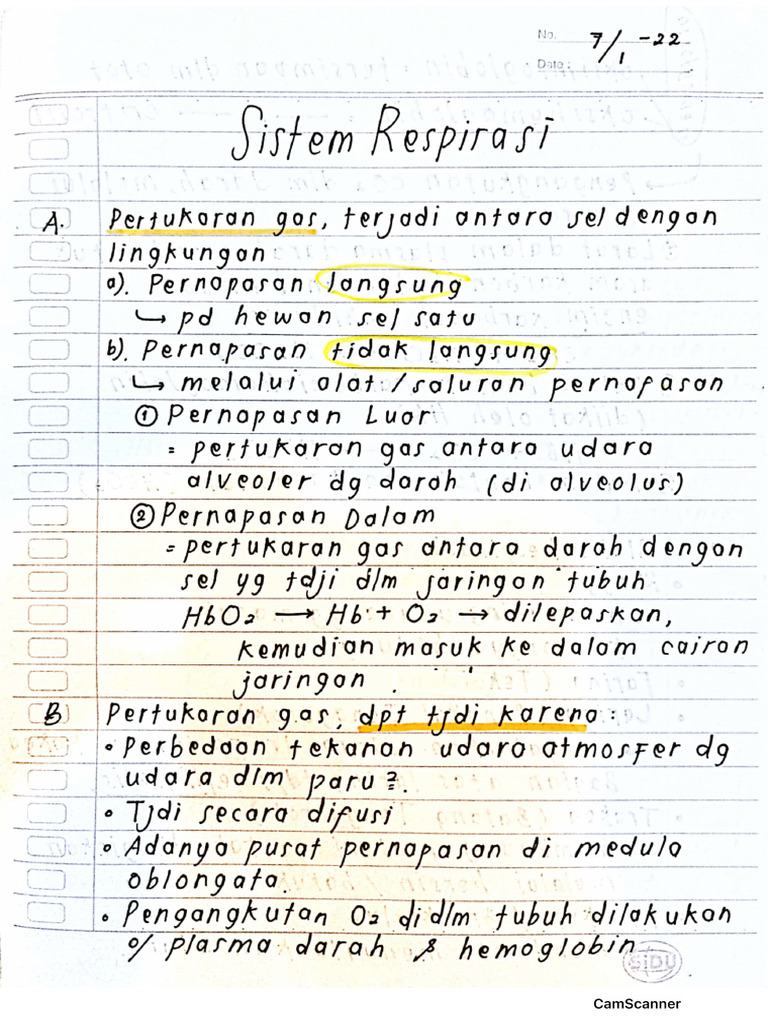 No. 7/1-22
Date:
Sistem Respirasi
A. Pertukaran gas, terjadi antara sel dengan
lingkungan
a). Pernapasan langsung
↳ pd hewan sel satu
b). Pernapasan tidak langsung
↳ melalui alat/saluran pernapasan
① Pernapasan Luar
= pertukaran gas antara udara
alveoler dg darah (di alveolus)
② Pernapasan Dalam
= pertukaran gas antara darah dengan
sel yg tdji dlm jaringan tubuh
HbO₂ → Hb + O₂ → dilepaskan,
kemudian masuk ke dalam cairan
jaringan.
B Pertukaran gas, dpt tjdi karena:
• Perbedaan tekanan udara atmosfer dg
udara dlm paru².
• Tjdi secara difusi
• Adanya pusat pernapasan di medula
oblongata
• Pengangkutan O₂ didlm tubuh dilakukan
o/ plasma darah & hemoglobin
SIDU
CamScanner